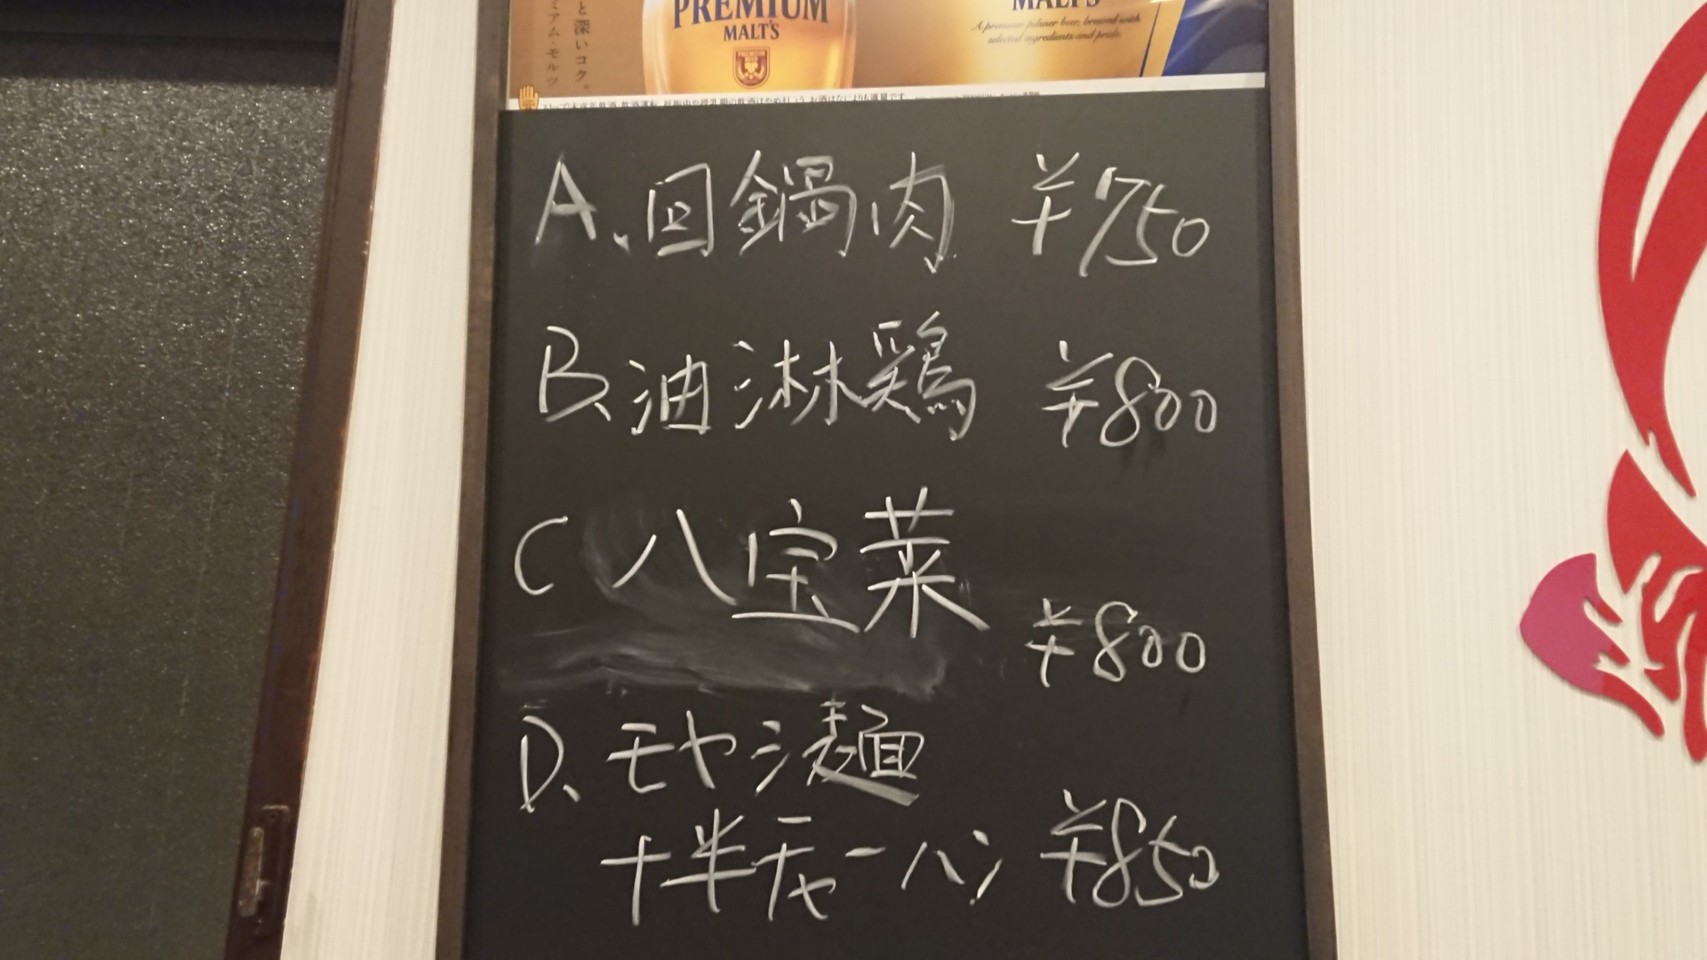 と深いコク。
ミアム・モルツ
PREMIUM
MALT'S
MALT'S
A premium pilsner beer, brewed with
selected ingredients and pride.
A、回鍋肉 ¥750
B、油淋鶏 ¥800
C 八宝菜 ¥800
D、モヤシ麺
+半チャーハン ¥850